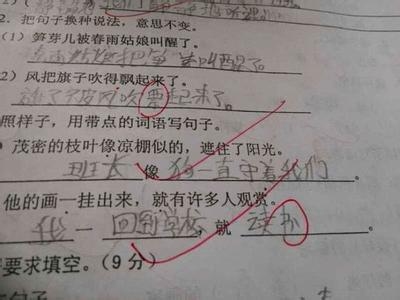 2. 把句子换种说法，意思不变。
(1) 笋芽儿被春雨姑娘叫醒了。
春雨姑娘把笋 叫醒了。
2) 风把旗子吹得飘起来了。
旗子被风吹票起来了。
照样子，用带点的词语写句子。
茂密的枝叶像凉棚似的，遮住了阳光。
班长 像 狗一直守着我们
他的画一挂出来，就有许多人观赏。
我 一 回到学校，就 读书
要求填空。(9分)